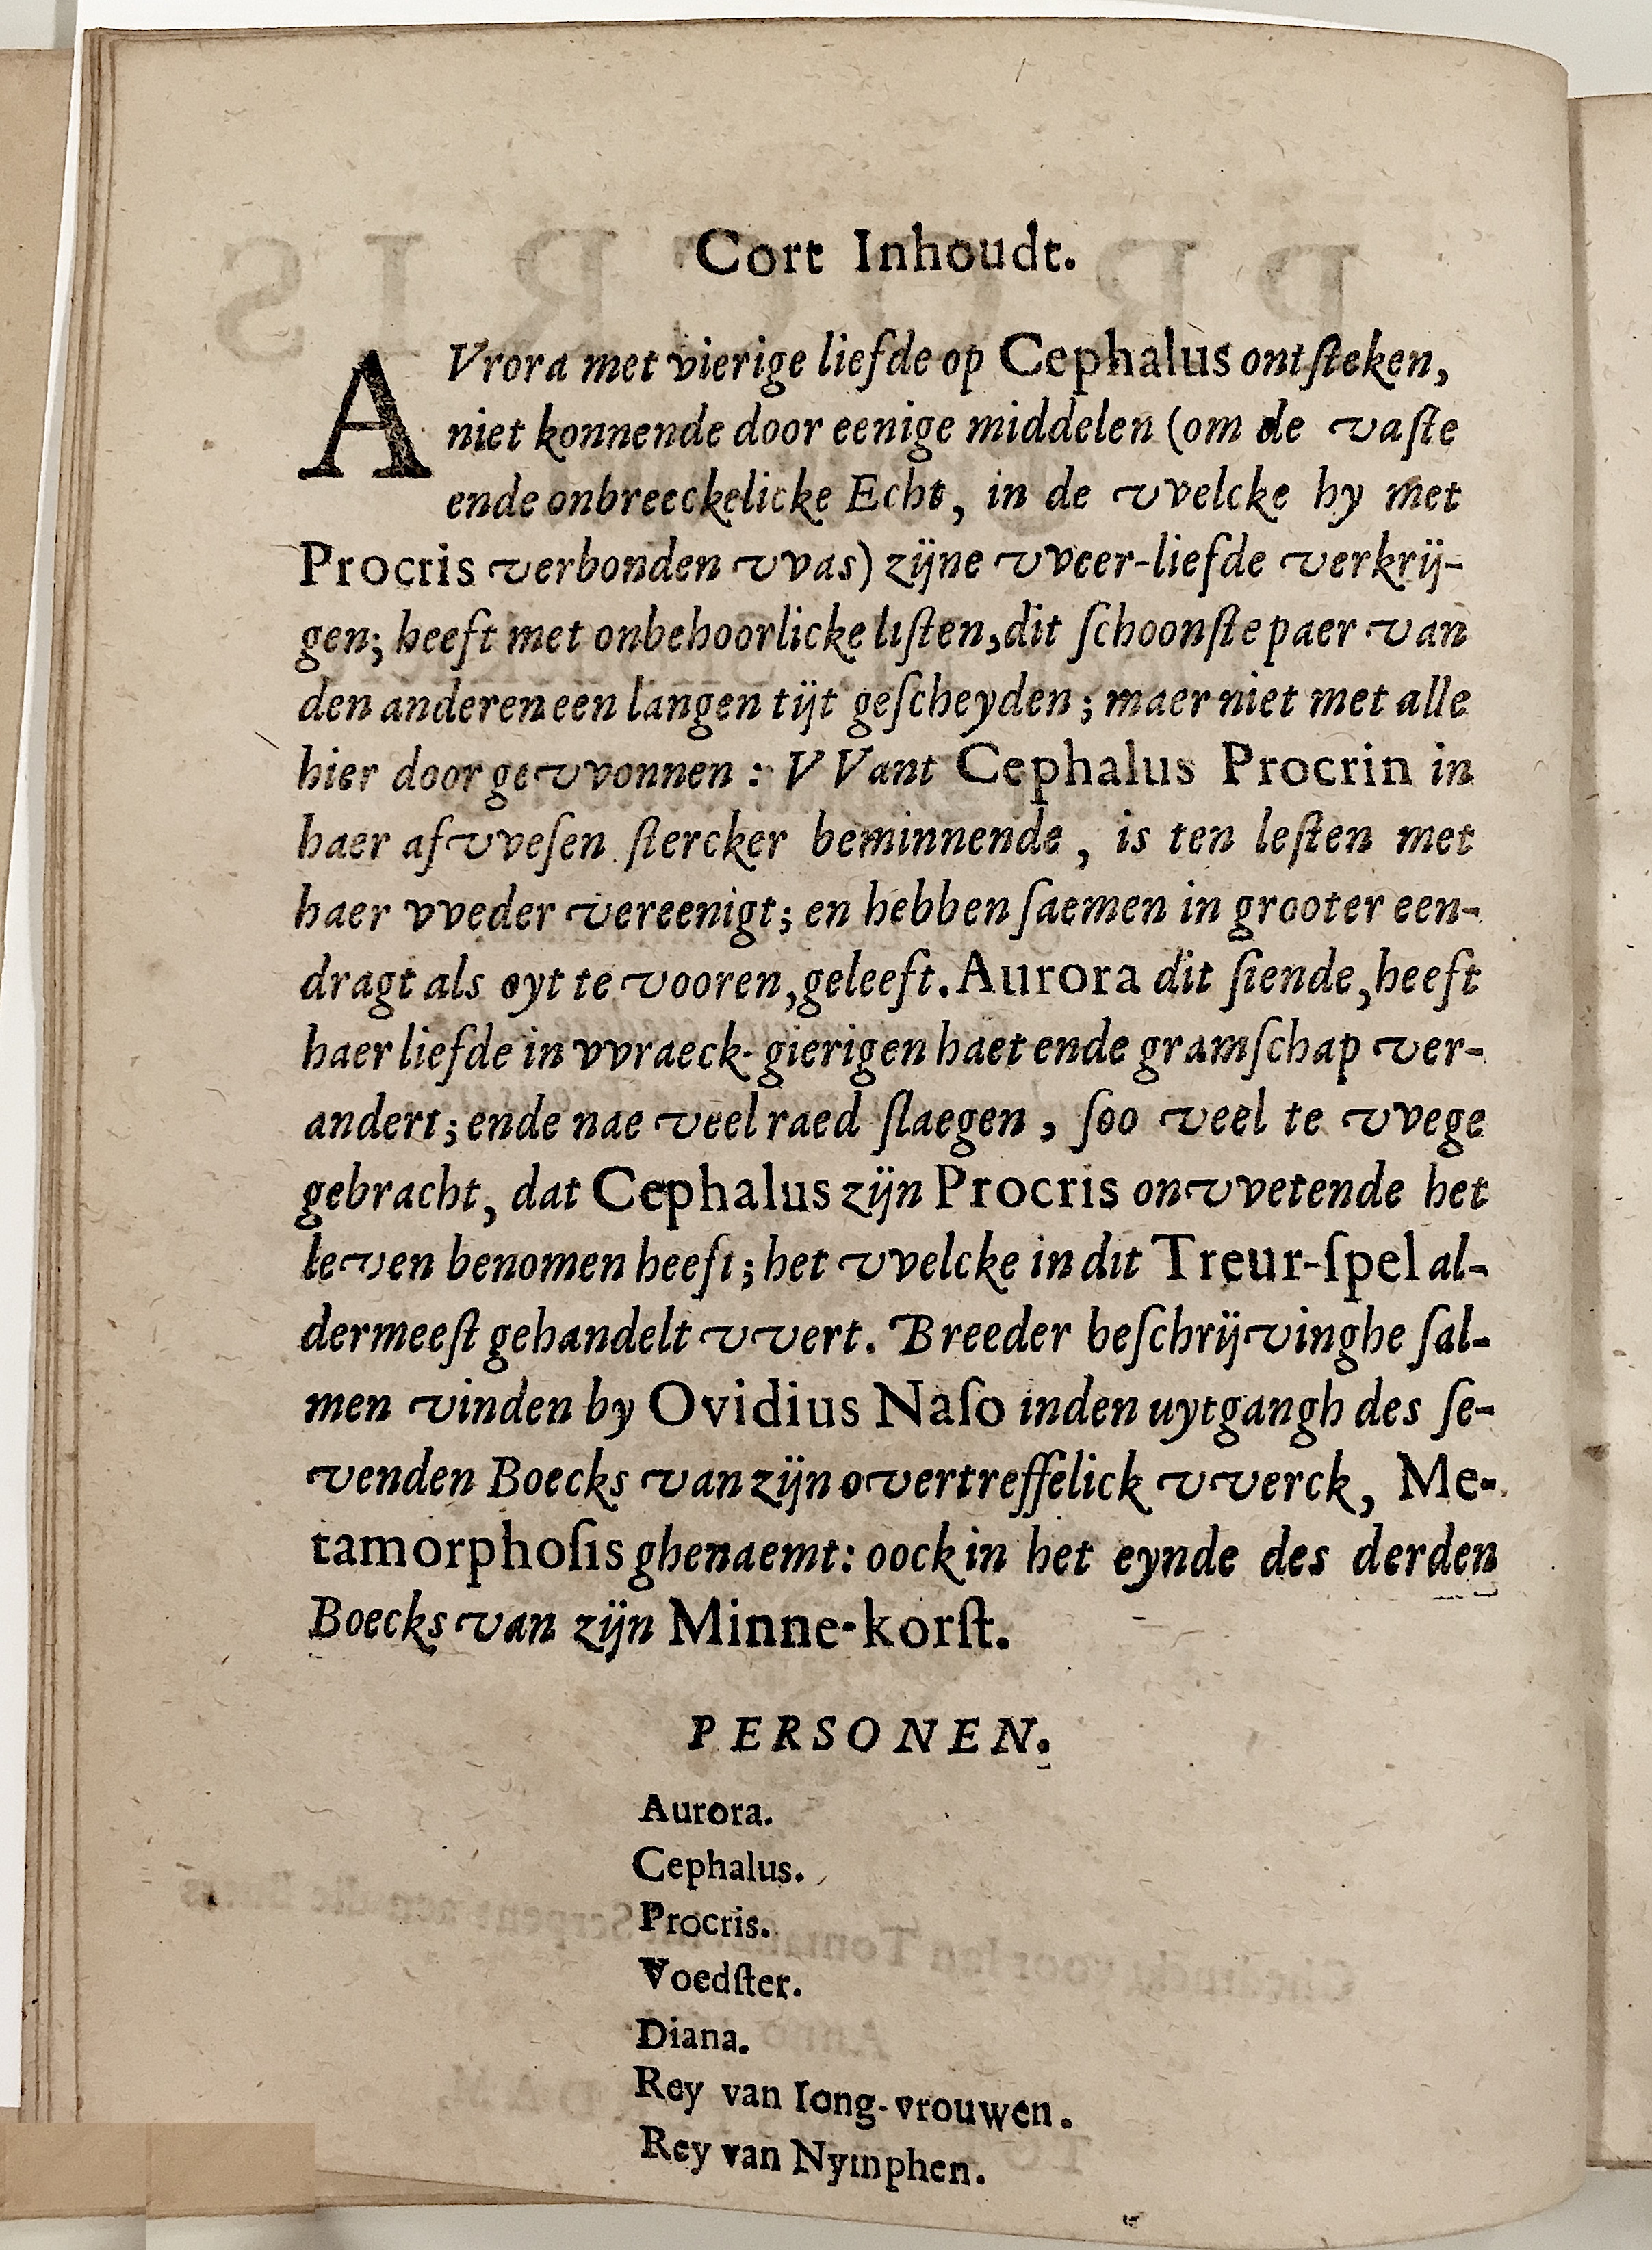 Cort Inhoudt.
AVrora met vierige liefde op Cephalus ontſteken,
niet konnende door eenige middelen (om de vaſte
ende onbreeckelicke Echt, in de vvelcke hy met
Procris verbonden vvas) zijne vveer-liefde verkrij-
gen; heeft met onbehoorlicke liſten, dit ſchoonſte paer van
den anderen een langen tijt geſcheyden; maer niet met alle
hier door gevvonnen: VVant Cephalus Procrin in
haer afvveſen ſtercker beminnende, is ten leſten met
haer vveder vereenigt; en hebben ſaemen in grooter een-
dragt als oyt te vooren, geleeft. Aurora dit ſiende, heeft
haer liefde in vvraeck-gierigen haet ende gramſchap ver-
andert; ende nae veel raed ſlaegen, ſoo veel te vvege
gebracht, dat Cephalus zijn Procris onvvetende het
leven benomen heeft; het vvelcke in dit Treur-ſpel al-
dermeeſt gehandelt vvert. Breeder beſchrijvinghe ſal-
men vinden by Ovidius Naſo inden uytgangh des ſe-
venden Boecks van zijn overtreffelick vverck, Me-
tamorphoſis ghenaemt: oock in het eynde des derden
Boecks van zijn Minne-korſt.
PERSONEN.
Aurora.
Cephalus.
Procris.
Voedſter.
Diana.
Rey van Iong-vrouwen.
Rey van Nymphen.